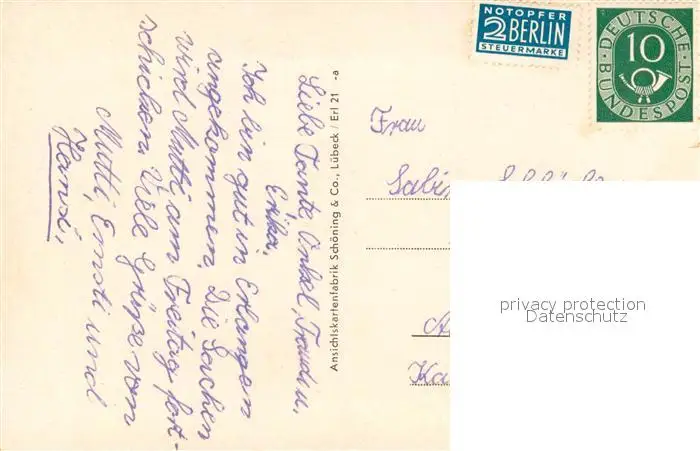 Liebe Tante, Onkel, Traudi u.
Erika.
Ich bin gut in Erlangen
eingekommen. Die Sachen
wird Mutti am Freitag fort-
schicken. Viele Grüsse von
Mutti, Ernsti und
Hansi,
Ansichtskartenfabrik Schöning & Co., Lübeck / Erl 21 -a
NOTOPFER
2 BERLIN
STEUERMARKE
DEUTSCHE
10
BUNDESPOST
Frau
privacy protection
Datenschutz